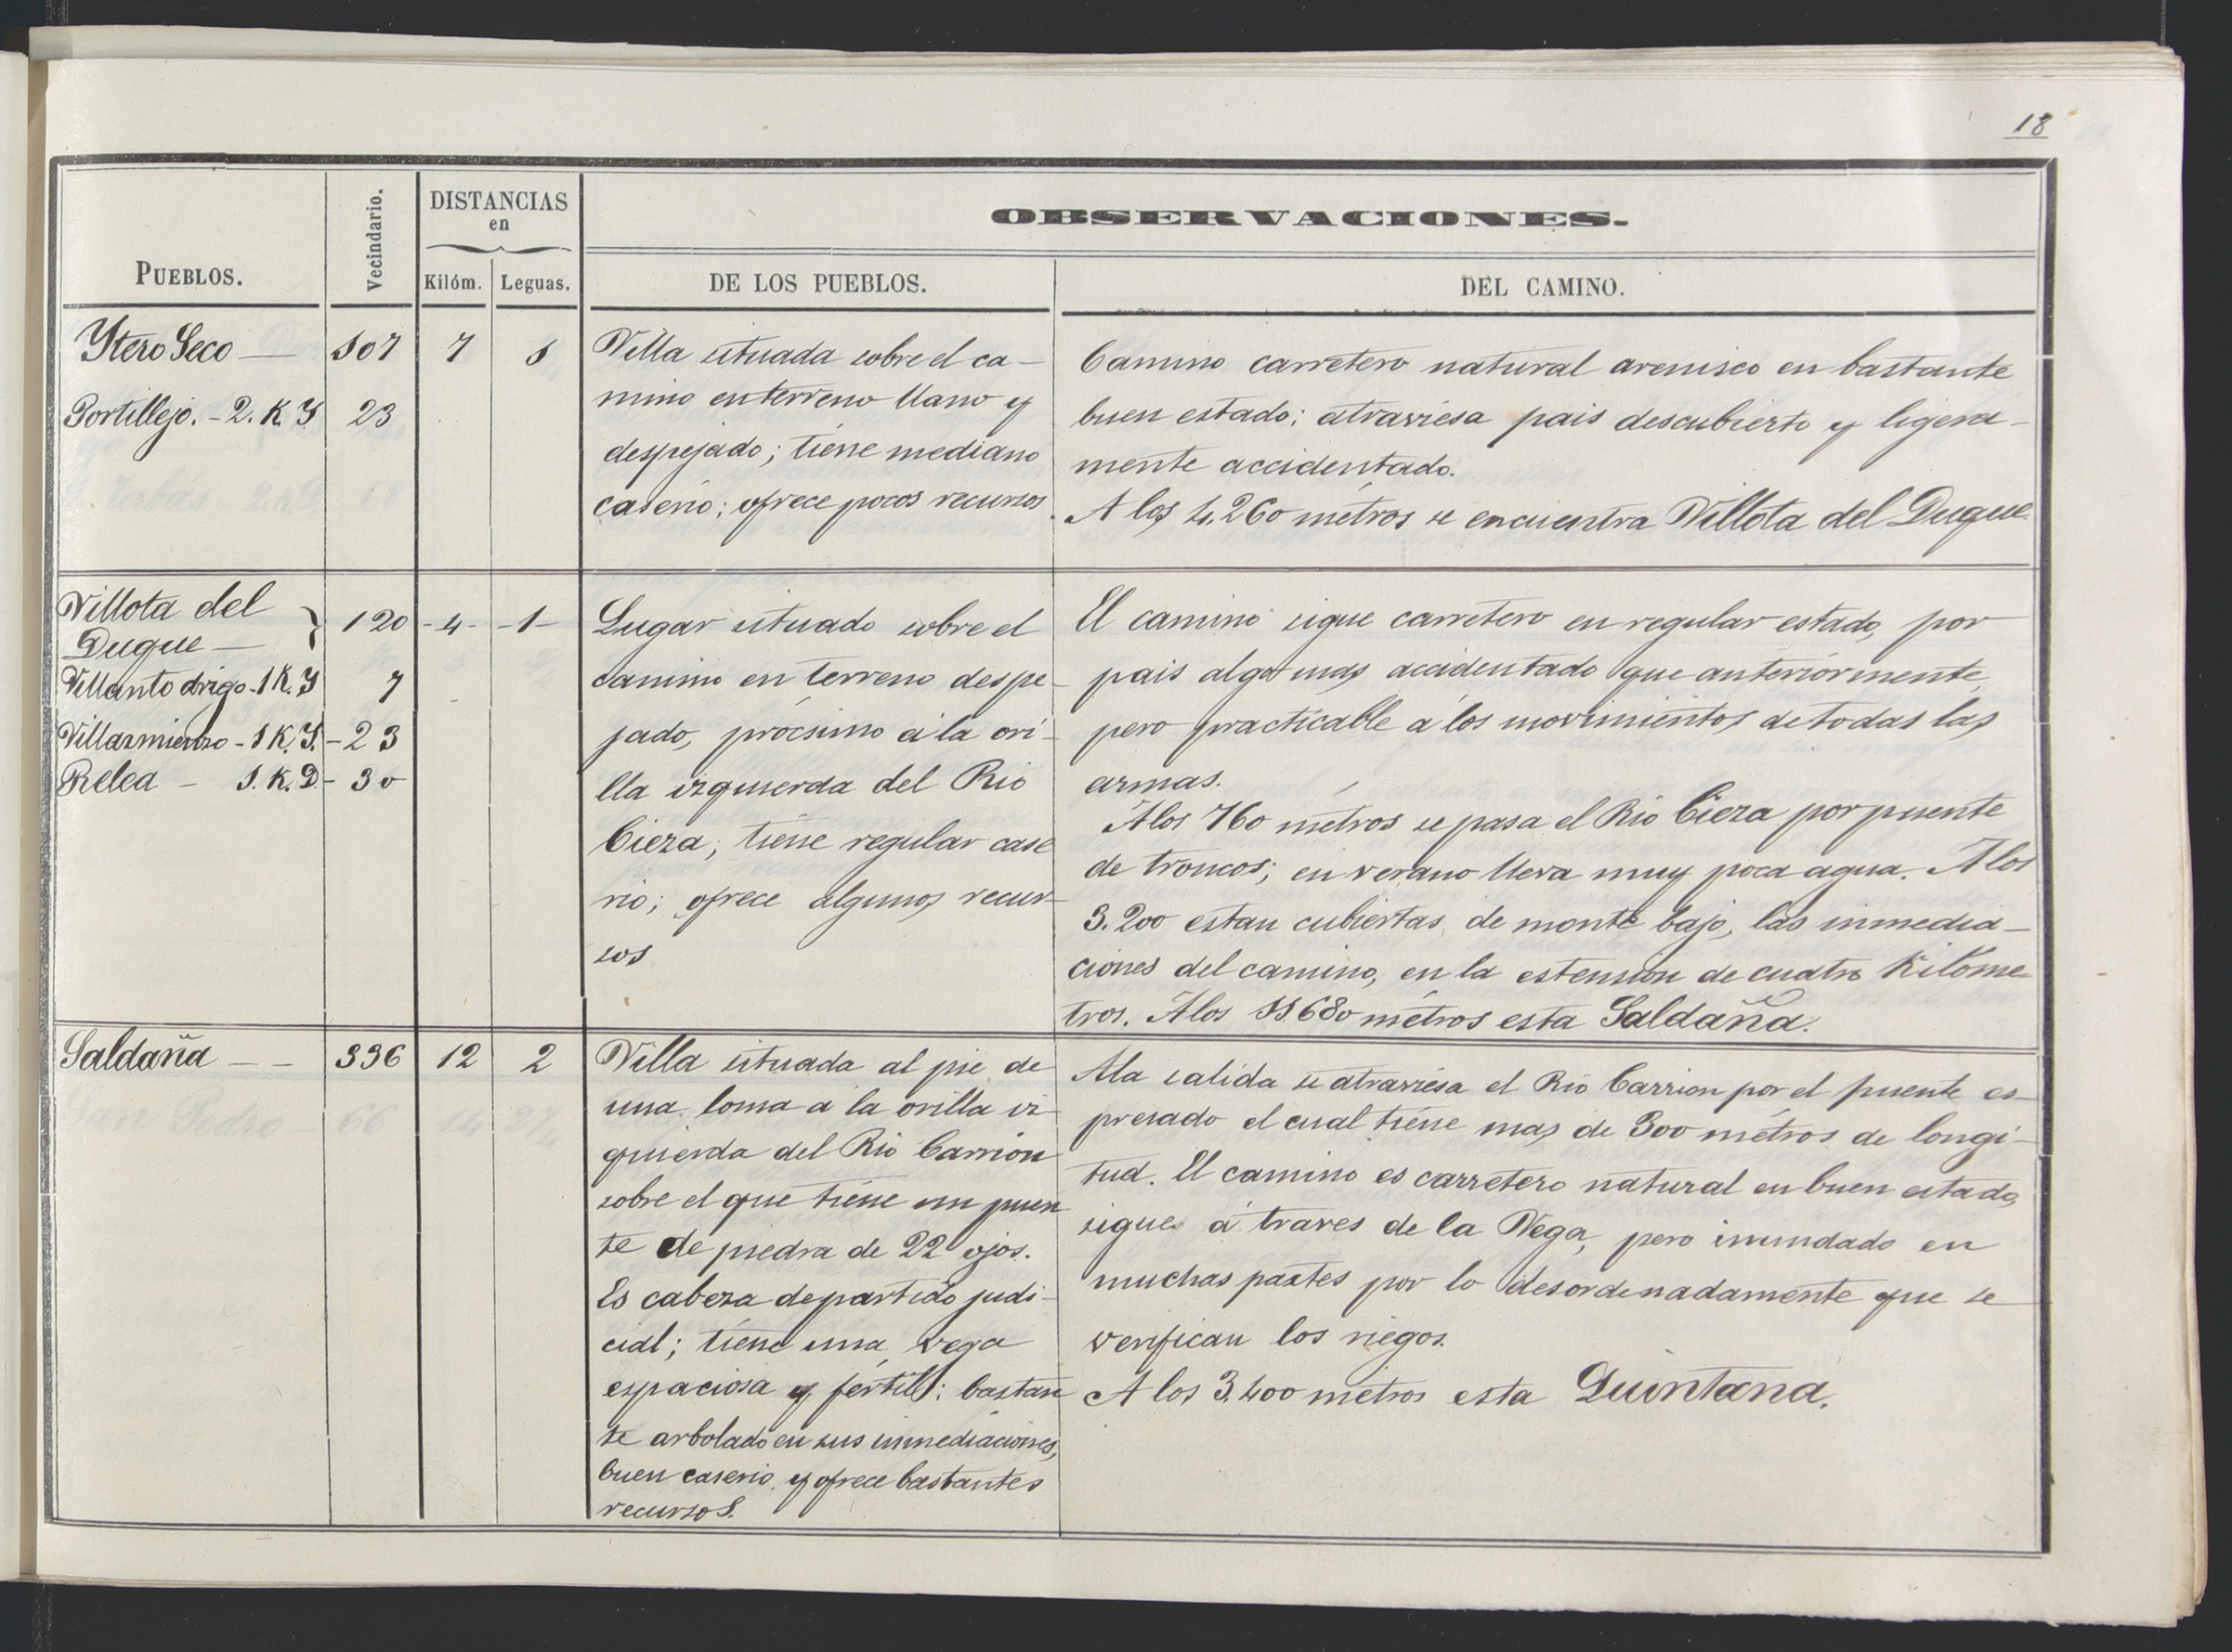 18
PUEBLOS.
Vecindario.
DISTANCIAS
en
Kilóm.
Leguas.
OBSERVACIONES.
DE LOS PUEBLOS.
DEL CAMINO.
Ytero Seco — 107 7 1
Portillejo. - 2. K. Y 23
Villa situada sobre el ca-
mino en terreno llano y
despejado; tiene mediano
caserio; ofrece pocos recursos
Camino carretero natural arenisco en bastante
buen estado; atraviesa pais descubierto y ligera-
mente accidentado.
A los 4.260 metros se encuentra Villota del Duque
Villota del
Duque — } 120 - 4 - - 1 -
Villantodrigo - 1 K. Y 7
Villarmienzo - 1 K. Y. - 23
Relea - 1. K. D - 30
Lugar situado sobre el
camino en terreno despe-
jado, procsimo á la ori-
lla izquierda del Rio
Cieza; tiene regular case
rio; ofrece algunos recur-
sos
El camino sigue carretero en regular estado, por
pais algo mas accidentado que anteriormente,
pero practicable á los movimientos de todas las
armas.
A los 760 metros se pasa el Rio Cieza por puente
de troncos; en verano lleva muy poca agua. A los
3.200 estan cubiertas de monte bajo, las inmedia-
ciones del camino, en la estension de cuatro Kilome
tros. A los 11680 metros esta Saldaña.
Saldaña — — 336 12 2
Villa situada al pie de
una loma a la orilla iz
quierda del Rio Carrion
sobre el que tiene un puen
te de piedra de 22 ojos.
Es cabeza de partido judi-
cial; tiene una vega
espaciosa y fertil; bastan
te arbolado en sus inmediaciones,
buen caserio y ofrece bastantes
recursos.
A la salida se atraviesa el Rio Carrion por el puente es-
presado el cual tiene mas de 300 metros de longi-
tud. El camino es carretero natural en buen estado,
sigue á traves de la Vega, pero inundado en
muchas partes por lo desordenadamente que se
verifican los riegos.
A los 3.400 metros esta Quintana.